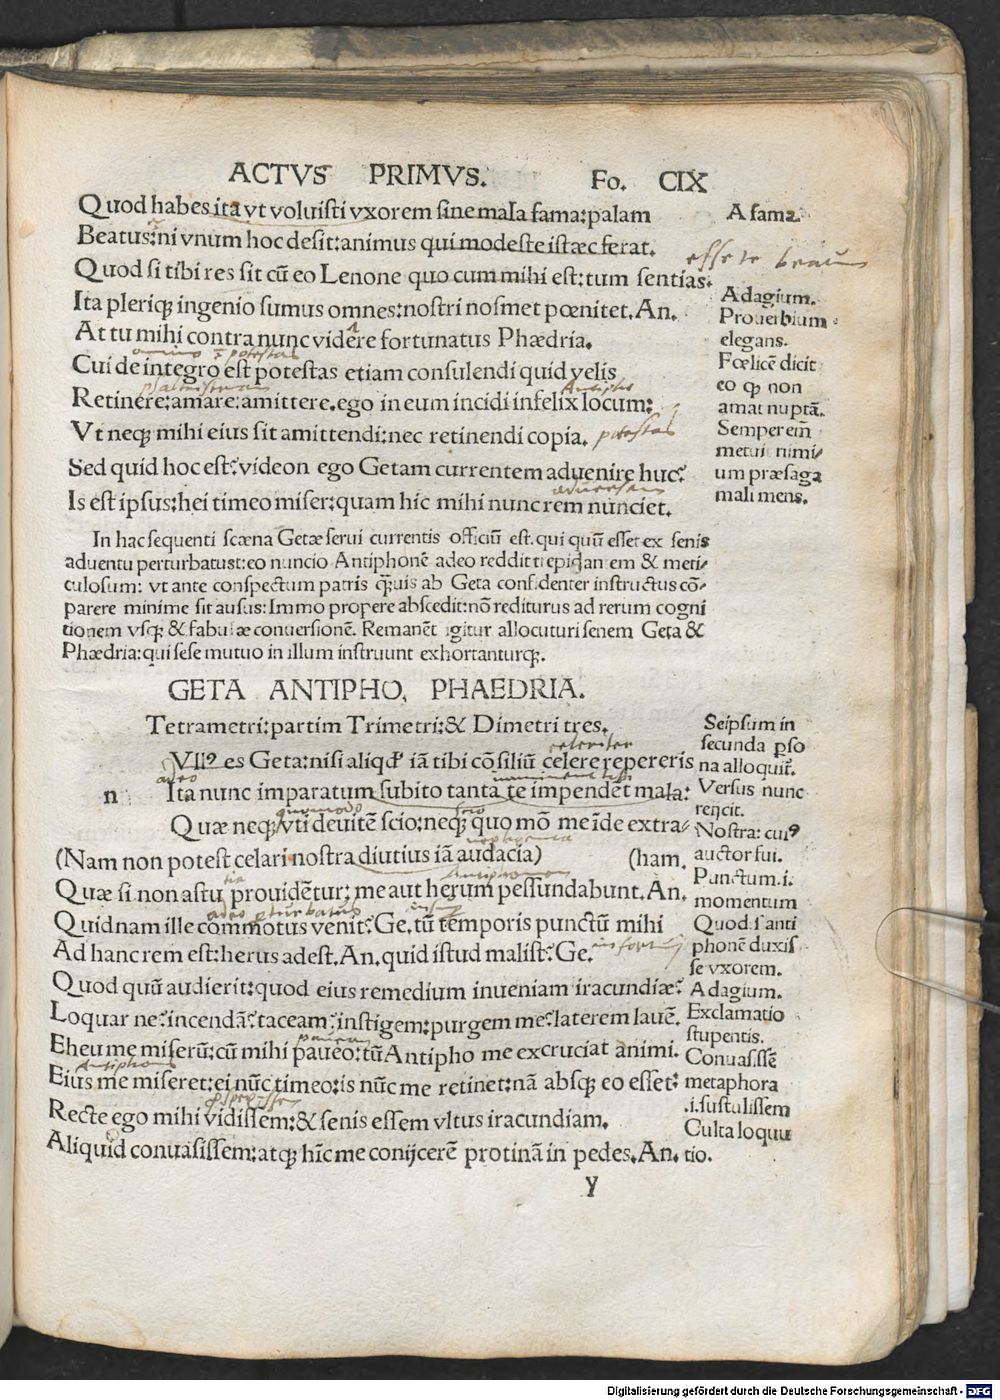 ACTVS PRIMVS. Fo. CIX
Quod habes ita vt voluisti vxorem sine mala fama: palam
Beatus: ni vnum hoc desit: animus qui modeste istæc ferat.
Quod si tibi res sit cū eo Lenone quo cum mihi est: tum sentias.
Ita pleriqꝫ ingenio sumus omnes: nostri nosmet pœnitet. An.
At tu mihi contra nunc videre fortunatus Phædria.
Cui de integro est potestas etiam consulendi quid velis
Retinere: amare: amittere. ego in eum incidi infelix locum:
Vt neqꝫ mihi eius sit amittendi: nec retinendi copia. potestas
Sed quid hoc est? videon ego Getam currentem aduenire huc?
Is est ipsus: hei timeo miser: quam hic mihi nunc rem nunciet.
A fama.
esse te beatum
Adagium.
Prouerbium
elegans.
Fœlicē dicit
eo ꝙ non
amat nuptā.
Semper em̄
metui nimi⸗
um præsaga
mali mens.
In hac sequenti scæna Getæ serui currentis officiū est. qui quū esset ex senis
aduentu perturbatus: eo nuncio Antiphonē adeo reddit trepidantem & meti⸗
culosum: vt ante conspectum patris q̄uis ab Geta confidenter instructus cō⸗
parere minime sit ausus: Immo propere abscedit: nō rediturus ad rerum cogni
tionem vsqꝫ & fabulæ conuersionē. Remanēt igitur allocuturi senem Geta &
Phædria: qui sese mutuo in illum instruunt exhortanturqꝫ.
GETA ANTIPHO, PHAEDRIA.
Tetrametri: partim Trimetri: & Dimetri tres.
celeriter
n VIIꝰ es Geta: nisi aliqđ iā tibi cōsiliū celere repereris
adeo
Ita nunc imparatum subito tanta te impendēt mala:
quomodo
Quæ neqꝫ vti deuitē scio: neqꝫ quo mō me īde extra⸗
(Nam non potest celari nostra diutius iā audacia) (ham.
Quæ si non astu prouidētur: me aut herum pessundabunt. An.
adeo pturbatus
Quidnam ille commotus venit? Ge. tū temporis punctū mihi
Ad hanc rem est: herus adest. An. quid istud malist? Ge.
Quod quū audierit: quod eius remedium inueniam iracundiæ?
Loquar ne? incendā? taceam? instigem: purgem me? laterem lauē.
Eheu me miserū: cū mihi paueo: tū Antipho me excruciat animi.
Antiphonis
Eius me miseret: ei nūc timeo: is nūc me retinet: nā absqꝫ eo esset:
Recte ego mihi vidissem: & senis essem vltus iracundiam.
Aliquid conuasissem: atqꝫ hīc me conijcerē protinā in pedes. An.
Seipsum in
secunda pso
na alloquit̄.
Versus nunc
reijcit.
Nostra: cuiꝰ
auctor fui.
Punctum .i.
momentum
Quod s. anti
phonē duxis
se vxorem.
Adagium.
Exclamatio
stupentis.
Conuasissē
metaphora
.i. sustulissem
Culta loquu
tio.
y
Digitalisierung gefördert durch die Deutsche Forschungsgemeinschaft - DFG